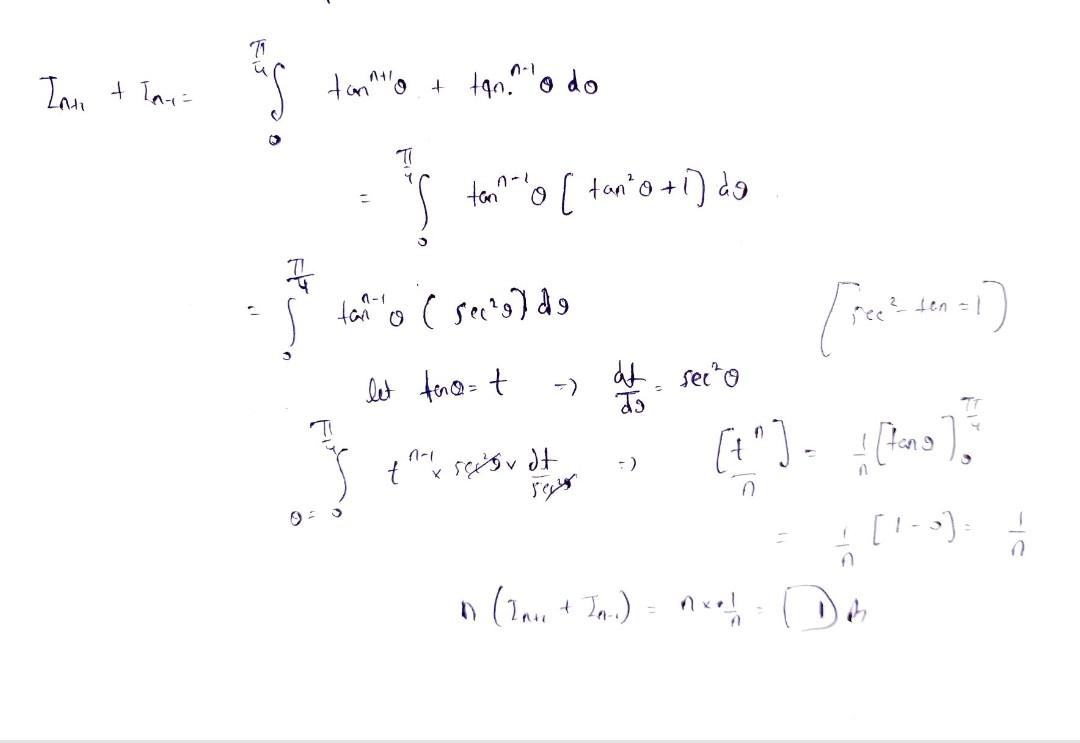 I_{n+1} + I_{n-1} = ∫_0^{π/4} tan^{n+1}θ + tan^{n-1}θ dθ
= ∫_0^{π/4} tan^{n-1}θ [ tan²θ + 1) dθ
= ∫_0^{π/4} tan^{n-1}θ ( sec²θ) dθ [sec² - tan = 1)
let tanθ = t => dt/dθ = sec²θ
∫_{θ=0}^{π/4} t^{n-1} × sec²θ × dt/sec²θ => [t^n/n] = 1/n [tanθ]_0^{π/4}
= 1/n [1-0] = 1/n
n (I_{n+1} + I_{n-1}) = n × 1/n = 1